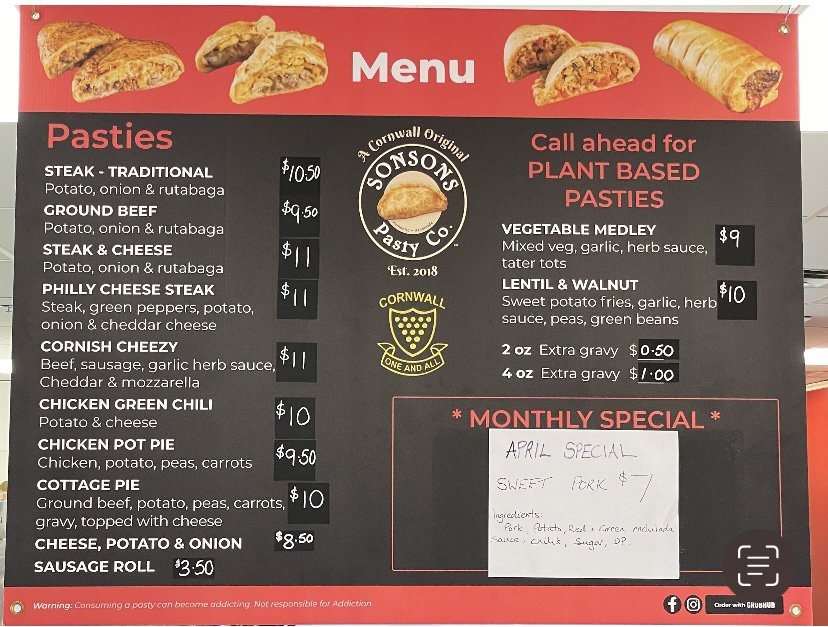 Menu
Pasties
STEAK - TRADITIONAL $10.50
Potato, onion & rutabaga
GROUND BEEF $9.50
Potato, onion & rutabaga
STEAK & CHEESE $11
Potato, onion & rutabaga
PHILLY CHEESE STEAK $11
Steak, green peppers, potato,
onion & cheddar cheese
CORNISH CHEEZY $11
Beef, sausage, garlic herb sauce,
Cheddar & mozzarella
CHICKEN GREEN CHILI $10
Potato & cheese
CHICKEN POT PIE $9.50
Chicken, potato, peas, carrots
COTTAGE PIE $10
Ground beef, potato, peas, carrots,
gravy, topped with cheese
CHEESE, POTATO & ONION $8.50
SAUSAGE ROLL $3.50
A Cornwall Original
SONSONS
Pasty Co.
Est. 2018
CORNWALL
ONE AND ALL
Call ahead for
PLANT BASED
PASTIES
VEGETABLE MEDLEY $9
Mixed veg, garlic, herb sauce,
tater tots
LENTIL & WALNUT $10
Sweet potato fries, garlic, herb
sauce, peas, green beans
2 oz Extra gravy $0.50
4 oz Extra gravy $1.00
* MONTHLY SPECIAL *
APRIL SPECIAL
SWEET PORK $7
Ingredients:
Pork, Potato, Red + Green enchilada
sauce, Sugar, DP.
Warning: Consuming a pasty can become addicting. Not responsible for Addiction.
Order with GRUBHUB